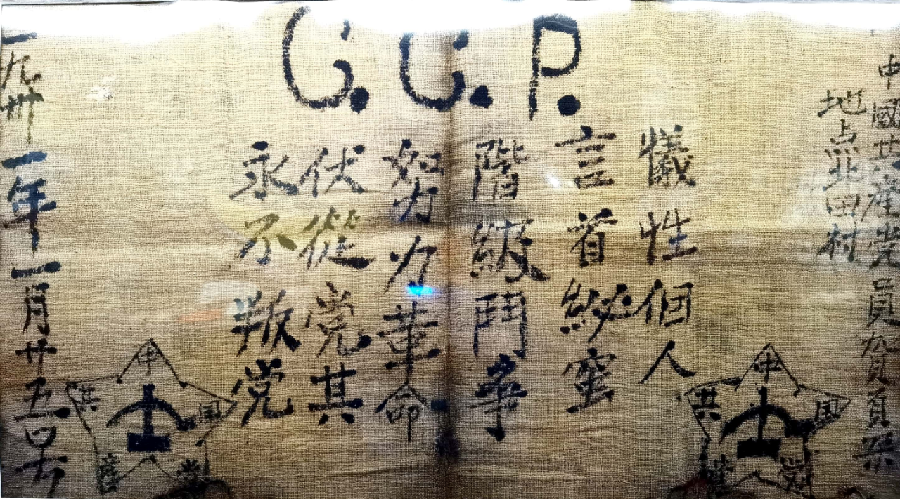 C.C.P.
中國共產党員賀頁朶
地点北田村
犠性個人
言首秘蜜
階級鬥争
努力革命
伏從党其
永不叛党
一九卅一年一月廿五四号
中国共產党
中国共產党